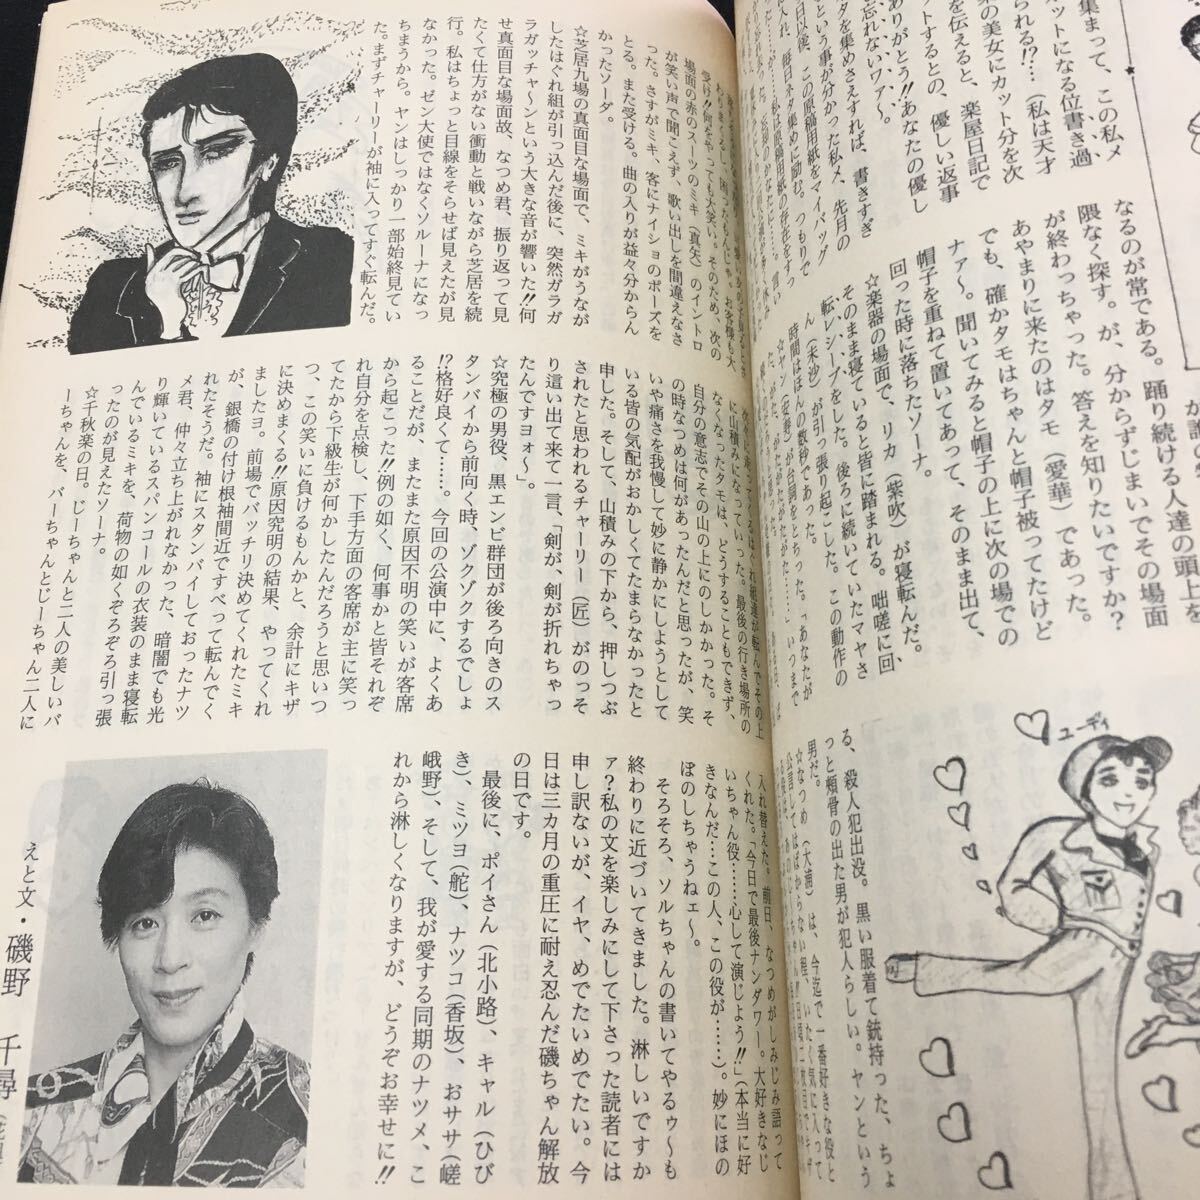 集まって、この私メ
ネットになる位書き過
られる!?…(私は天才
楽の美女にカット分を次
を伝えると、楽屋日記で
ットするとの、優しい返事
ありがとう!!あなたの優し
忘れないワァ〜。
という事が分かった私メ、先月の
タを集めさえすれば、書きすぎ
日以後、この原稿用紙をマイバッグ
に入れ、毎日ネタ集めに励む。つもりで
なるのが常である。踊り続ける人達の頭上を
隈なく探す。が、分からずじまいでその場面
が終わっちゃった。答えを知りたいですか?
あやまりに来たのはタモ(愛華)であった。
でも、確かタモはちゃんと帽子被ってたけど
ナァ〜。聞いてみると帽子の上に次の場での
帽子を重ねて置いてあって、そのまま出て、
回った時に落ちたソーナ。
☆楽器の場面で、リカ(紫吹)が寝転んだ。
そのまま寝ていると皆に踏まれる。咄嗟に回
転レシーブをした。後ろに続いていたマヤさ
ん(未沙)が引っ張り起こした。この動作の
時間はほんの数秒であった。
ユーディ
る、殺人犯出没。黒い服着て銃持った、ちょ
っと頬骨の出た男が犯人らしい。ヤンという
男だ。
☆なつめ(大浦)は、今迄で一番好きな役と
公言してはばからない程、いたく気に入って
受け!!何をやっても大笑い。そのため、次の
場面の赤のスーツのミキ(真矢)のイントロ
が笑い声で聞こえず、歌い出しを間違えなさ
った。さすがミキ、客にナイショのポーズを
とる。また受ける。曲の入りが益々分からん
かったソーダ。
☆芝居九場の真面目な場面で、ミキがうなが
したはぐれ組が引っ込んだ後に、突然ガラガ
ラガッチャ〜ンという大きな音が響いた!!何
せ真面目な場面故、なつめ君、振り返って見
たくて仕方がない衝動と戦いながら芝居を続
行。私はちょっと目線をそらせば見えたが見
なかった。ゼン大使ではなくソルーナになっ
ちまうから。ヤンはしっかり一部始終見てい
た。まずチャーリーが袖に入ってすぐ転んだ。
に山積みになっていった。最後の行き場所の
なくなったタモは、どうすることもできず、
自分の意志でその山の上にのしかかった。そ
の時なつめは何があったんだと思ったが、笑
いや痛さを我慢して妙に静かにしようとして
いる皆の気配がおかしくてたまらなかったと
申した。そして、山積みの下から、押しつぶ
されたと思われるチャーリー(匠)がのっそ
り這い出て来て一言、「剣が、剣が折れちゃっ
たんですヨォ〜」。
☆究極の男役、黒エンビ群団が後ろ向きのス
タンバイから前向く時、ゾクゾクするでしょ
!?格好良くて……。今回の公演中に、よくあ
ることだが、またまた原因不明の笑いが客席
から起こった!!例の如く、何事かと皆それぞ
れ自分を点検し、下手方面の客席が主に笑っ
てたから下級生が何かしたんだろうと思いつ
つ、この笑いに負けるもんかと、余計にキザ
に決めまくる!!原因究明の結果、やってくれ
ましたヨ。前場でバッチリ決めてくれたミキ
が、銀橋の付け根袖間近ですべって転んでく
れたそうだ。袖にスタンバイしておったナツ
メ君、仲々立ち上がれなかった、暗闇でも光
り輝いているスパンコールの衣装のまま寝転
んでいるミキを、荷物の如くぞろぞろ引っ張
ったのが見えたソーナ。
☆千秋楽の日。じーちゃんと二人の美しいバ
ーちゃんを、バーちゃんとじーちゃん二人に
入れ替えた。前日、なつめがしみじみ語って
くれた。「今日で最後ナンダワー。大好きなじ
いちゃん役……心して演じよう!!」(本当に好
きなんだ…この人、この役が……)。妙にほの
ぼのしちゃうねェ〜。
そろそろ、ソルちゃんの書いてやるゥ〜も
終わりに近づいてきました。淋しいですか
ァ?私の文を楽しみにして下さった読者には
申し訳ないが、イヤ、めでたいめでたい。今
日は三カ月の重圧に耐え忍んだ磯ちゃん解放
の日です。
最後に、ポイさん(北小路)、キャル(ひび
き)、ミツヨ(舵)、ナツコ(香坂)、おササ(嵯
峨野)、そして、我が愛する同期のナツメ、こ
れから淋しくなりますが、どうぞお幸せに!!
えと文・磯野 千尋